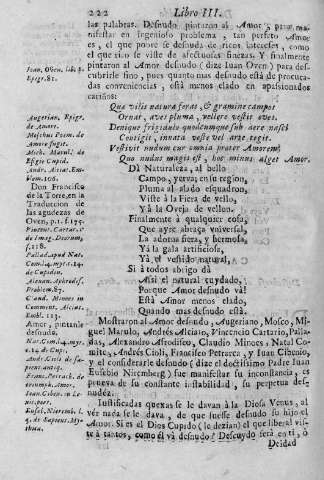 222 Libro III.
las palabras. Desnudo pintaron al Amor, para manifestar
en ingenioso problema, tan perfeto Amores
es, el que pobre se desnuda de ricos intereses, como
el que rico se viste de afectuosas finezas. Y finalmente
pintaron al Amor desnudo (dize Iuan Oven) para descubrirle
sino, pues quanto mas desnudo està de procuradas
conveniencias, està menos elado en apasionados
cariños:
Que vtilis natura feras, & gramine campos
Ornat, aves pluma, vellere vestit oves.
Denique frigidulo quodcumque sub aere nasci
Contigit, innata veste vel arte tegit.
Vestivit nudum cur omnia præter Amorem?
Quo nudus magis est, hoc minus alget Amor.
Dà Naturaleza, al bello
Campo, yerva; en su region,
Pluma al alado esquadron,
Viste à la Fiera de vello,
Yà la Oveja de vellon.
Finalmente à qualquier cosa,
Que ayre abraça vniversal,
La adorna fiera, y hermosa,
Yà la gala artificiosa,
Yà, el vestido natural,
Si à todos abrigo dà
Assi el natural cuydado,
Porque Amor desnudo và?
Està Amor menos elado,
Quando mas desnudo està.
Mostraron al Amor desnudo, Augeriano, Mosco, Miguel
Marulo, Andrès Alciato, Vincencio Cartario, Palladas,
Alexandro Afrodiseo, Claudio Minoes, Natal Comite,
Andrès Cioli, Francisco Petrarca, y Iuan Ciberio,
y el considerarle desnudo (dize el doctissimo Padre Iuan
Eusebio Nieremberg) fue manifestar su inconstancia, es
prueva de su constante instabilidad, su perpetua desnudèz.
Iustificadas quexas se le davan à la Diosa Venus, al
vèr nada se le dava, de que fuesse desnudo su hijo el
Amor. Si es el Dios Cupido (le dezian) el que liberal viste
à tantos, como èl và desnudo? Descuydo serà en ti, ò
Deidad
Ioan. Oven. lib. 2.
Epigr. 81.
Augerian. Epigr.
de Amore.
Moschus Poem. de
Amore fugit.
Mich. Marull. de
Effigie Cupid.
Andr. Alciat. Emblem.
106.
Don Francisco
de la Torre, en la
Traduccion de
las agudezas de
Oven, p. 1. f. 155.
Vincent. Cartar.
de Imag. Deorum,
f. 218.
Pallad. apud Nat.
Com. l. 4. myt. c. 14.
de Cupidin.
Alexan. Aphrod.
Problem. 87.
Claud. Minoes in
Comment. Alciat.
Embl. 113.
Amor, pintanle
desnudo.
Nat. Com. l. 4. myt.
c. 14. de Cup.
Franc. Petrarch. de
triumph. Amor.